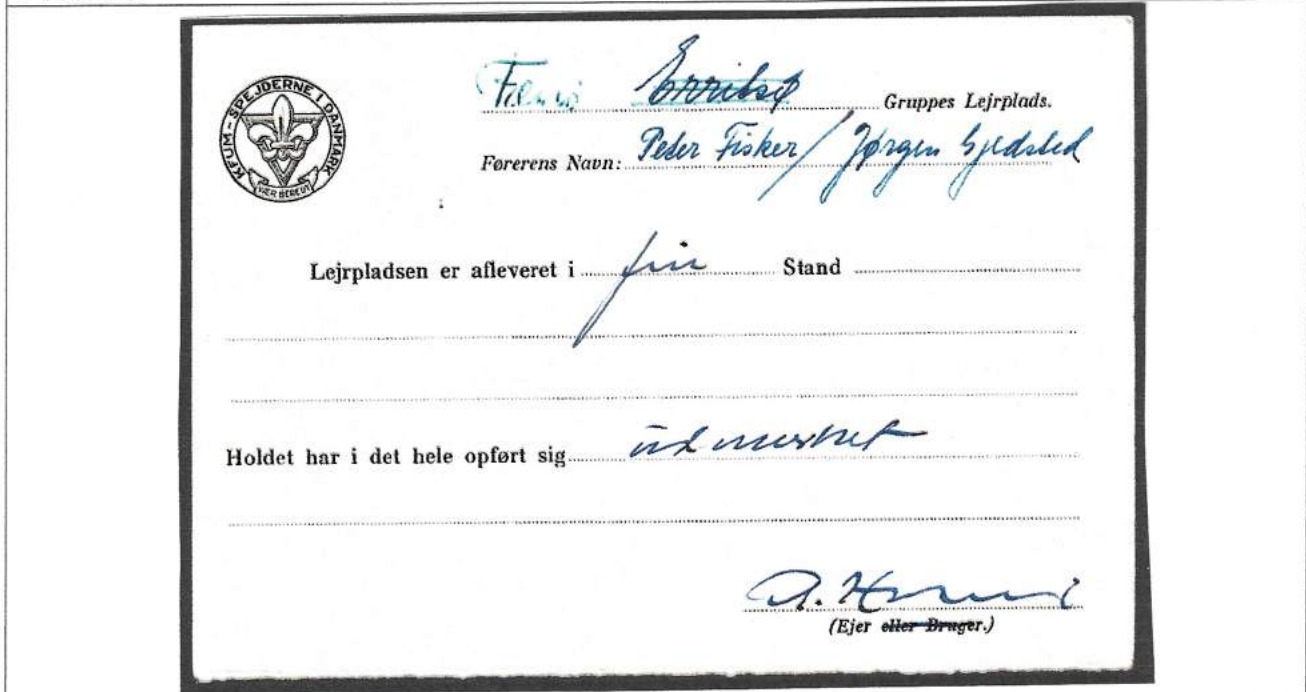 KFUM-SPEJDERNE I DANMARK
VÆR BEREDT
Erritsø Gruppes Lejrplads.
Førerens Navn: Peder Fisker / Jørgen Gjedsted
Lejrpladsen er afleveret i fin Stand
Holdet har i det hele opført sig udmerket
(Ejer eller Bruger.)